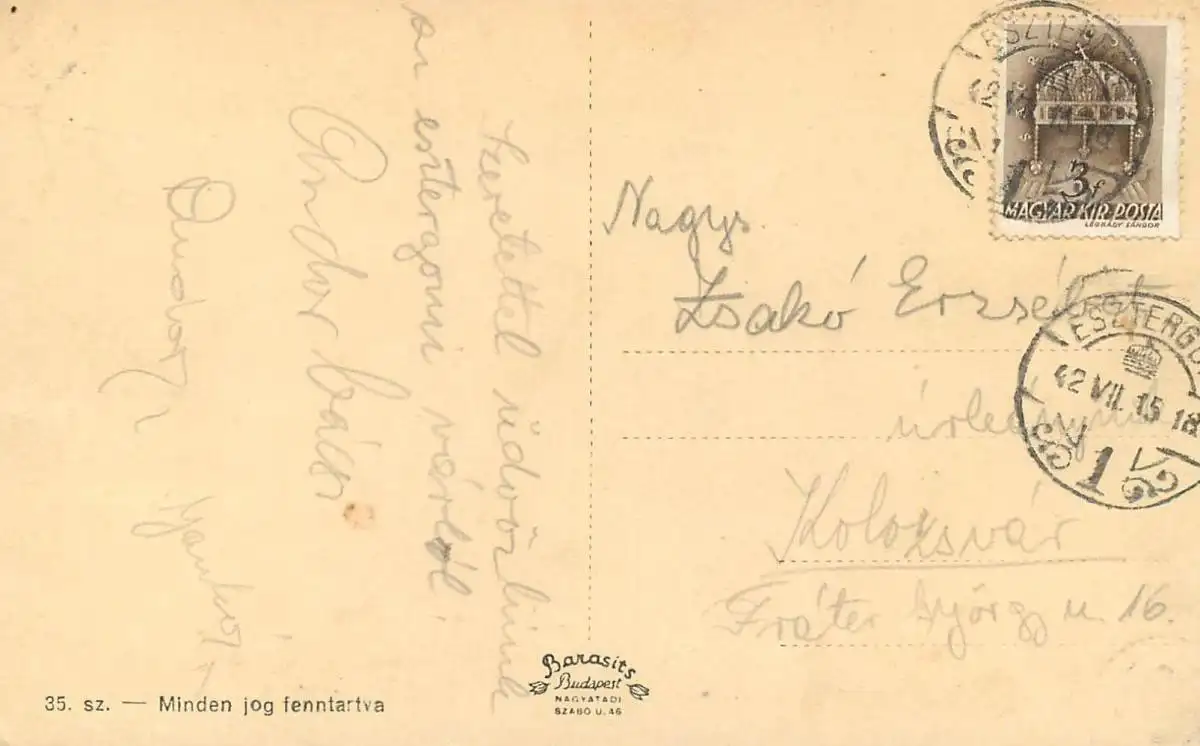 Szeretettel üdvözlünk
az esztergomi várból!
Andor bácsi
Nagys.
Zsakó Erzsébet
úrleánynak
Kolozsvár
Fráter György u. 16.
3f
MAGYAR KIR. POSTA
LÉGRÁDY SÁNDOR
ESZTERGOM
42 VII. 15 18
1
Barasits
Budapest
NAGYATÁDI
SZABÓ U. 46
35. sz. — Minden jog fenntartva